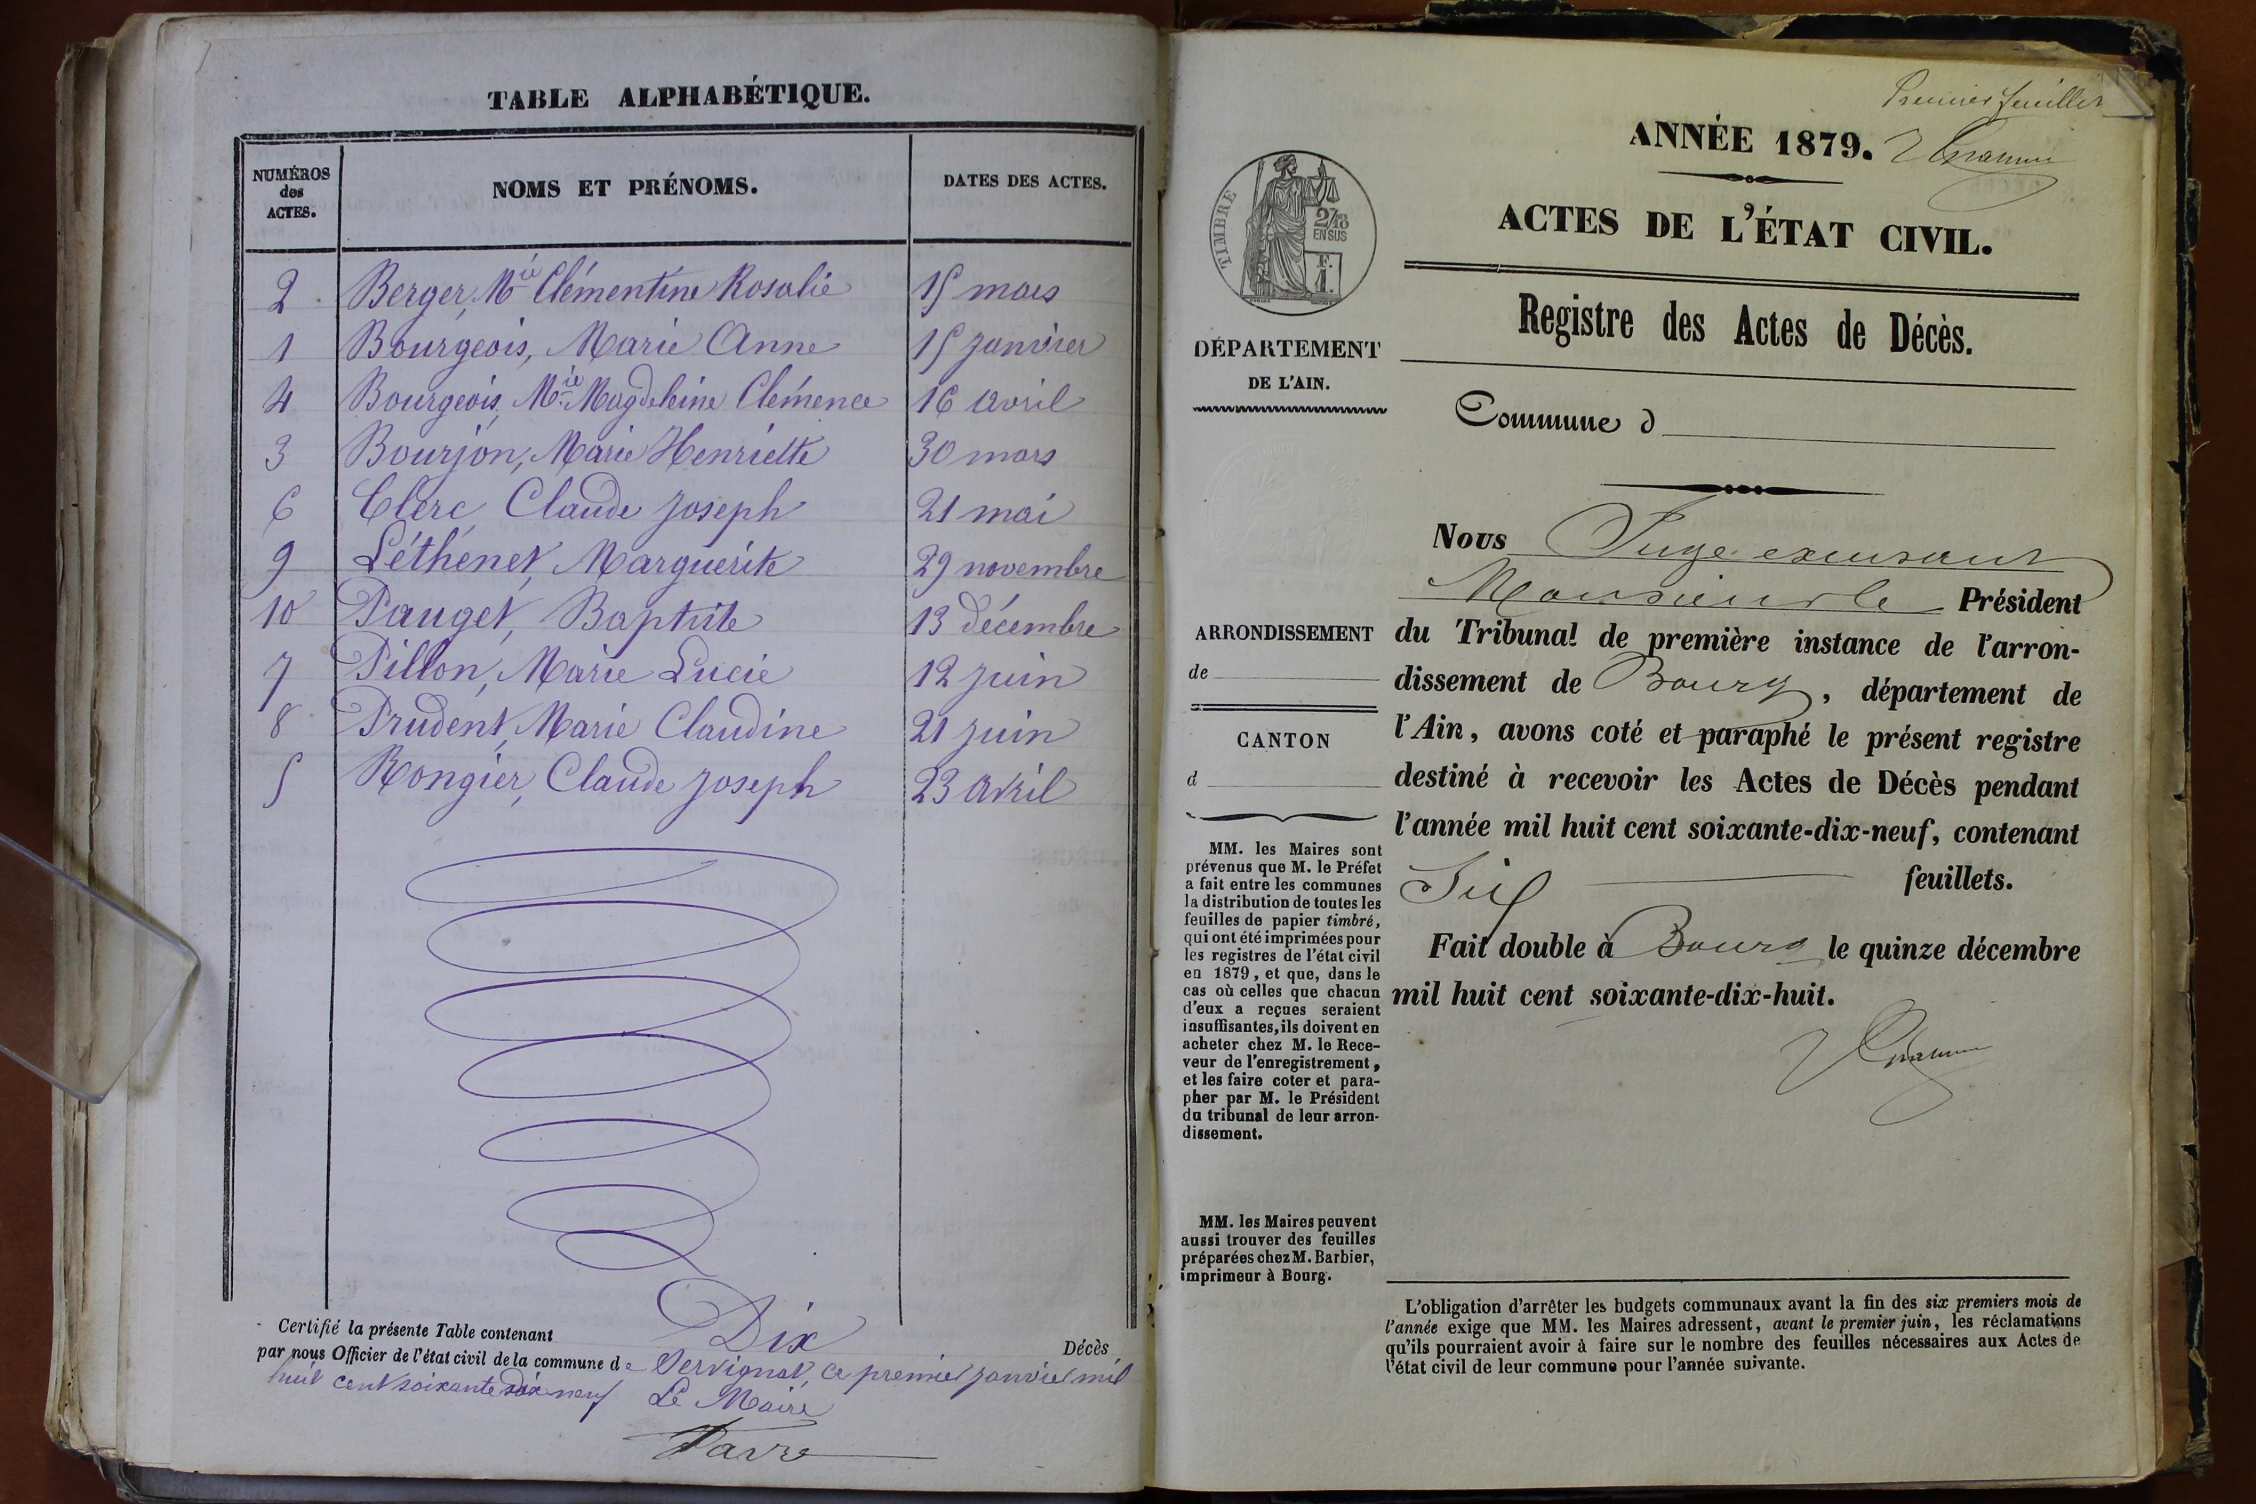 TABLE ALPHABÉTIQUE.
NUMÉROS
des
ACTES.
NOMS ET PRÉNOMS.
DATES DES ACTES.
2 Berger, Mie Clémentine Rosalie 15 mars
1 Bourgeois, Marie Anne 15 janvier
4 Bourgeois, Mie Magdeleine Clémence 16 avril
3 Bourjon, Marie Henriette 30 mars
6 Clerc, Claude Joseph 21 mai
9 Léthenet, Marguerite 29 novembre
10 Pauget, Baptiste 13 décembre
7 Pillon, Marie Lucie 12 juin
8 Prudent, Marie Claudine 21 juin
5 Rongier, Claude Joseph 23 avril
Certifié la présente Table contenant Dix Décès
par nous Officier de l'état civil de la commune de Servignat, ce premier janvier mil
huit cent soixante dix neuf
Le Maire
Favre
Premier feuillet
ANNÉE 1879.
ACTES DE L'ÉTAT CIVIL.
TIMBRE
2/10
EN SUS
F.
1.
Registre des Actes de Décès.
DÉPARTEMENT
DE L'AIN.
Commune d
Nous Juge excusant
Monsieur le Président
du Tribunal de première instance de l'arron-
dissement de Bourg, département de
l'Ain, avons coté et paraphé le présent registre
destiné à recevoir les Actes de Décès pendant
l'année mil huit cent soixante-dix-neuf, contenant
Six feuillets.
Fait double à Bourg le quinze décembre
mil huit cent soixante-dix-huit.
ARRONDISSEMENT
de
CANTON
d
MM. les Maires sont
prévenus que M. le Préfet
a fait entre les communes
la distribution de toutes les
feuilles de papier timbré,
qui ont été imprimées pour
les registres de l'état civil
en 1879, et que, dans le
cas où celles que chacun
d'eux a reçues seraient
insuffisantes, ils doivent en
acheter chez M. le Rece-
veur de l'enregistrement,
et les faire coter et para-
pher par M. le Président
du tribunal de leur arron-
dissement.
MM. les Maires peuvent
aussi trouver des feuilles
préparées chez M. Barbier,
imprimeur à Bourg.
L'obligation d'arrêter les budgets communaux avant la fin des six premiers mois de
l'année exige que MM. les Maires adressent, avant le premier juin, les réclamations
qu'ils pourraient avoir à faire sur le nombre des feuilles nécessaires aux Actes de
l'état civil de leur commune pour l'année suivante.